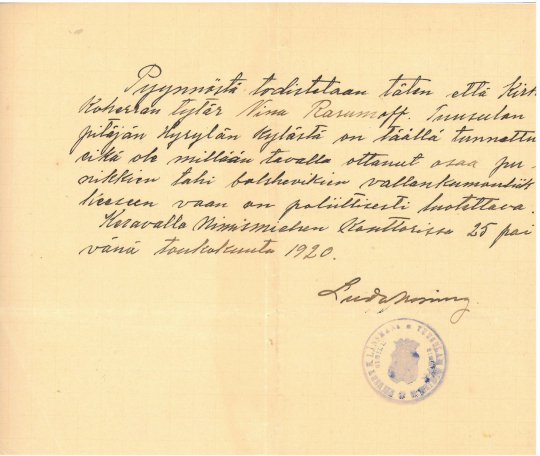 Pyynnöstä todistetaan täten että Kirk
Koherran tytär Nina Rasumoff. Tuusulan
pitäjän Hyrylän kylästä on täällä tunnettu
eikä ole millään tavalla ottanut osaa pu-
nikkien tahi bolshevikien vallankumouslik
keeseen vaan on poliittisesti luotettava.
Keravalla Nimismiehen Konttorissa 25 päi
vänä toukokuuta 1920.